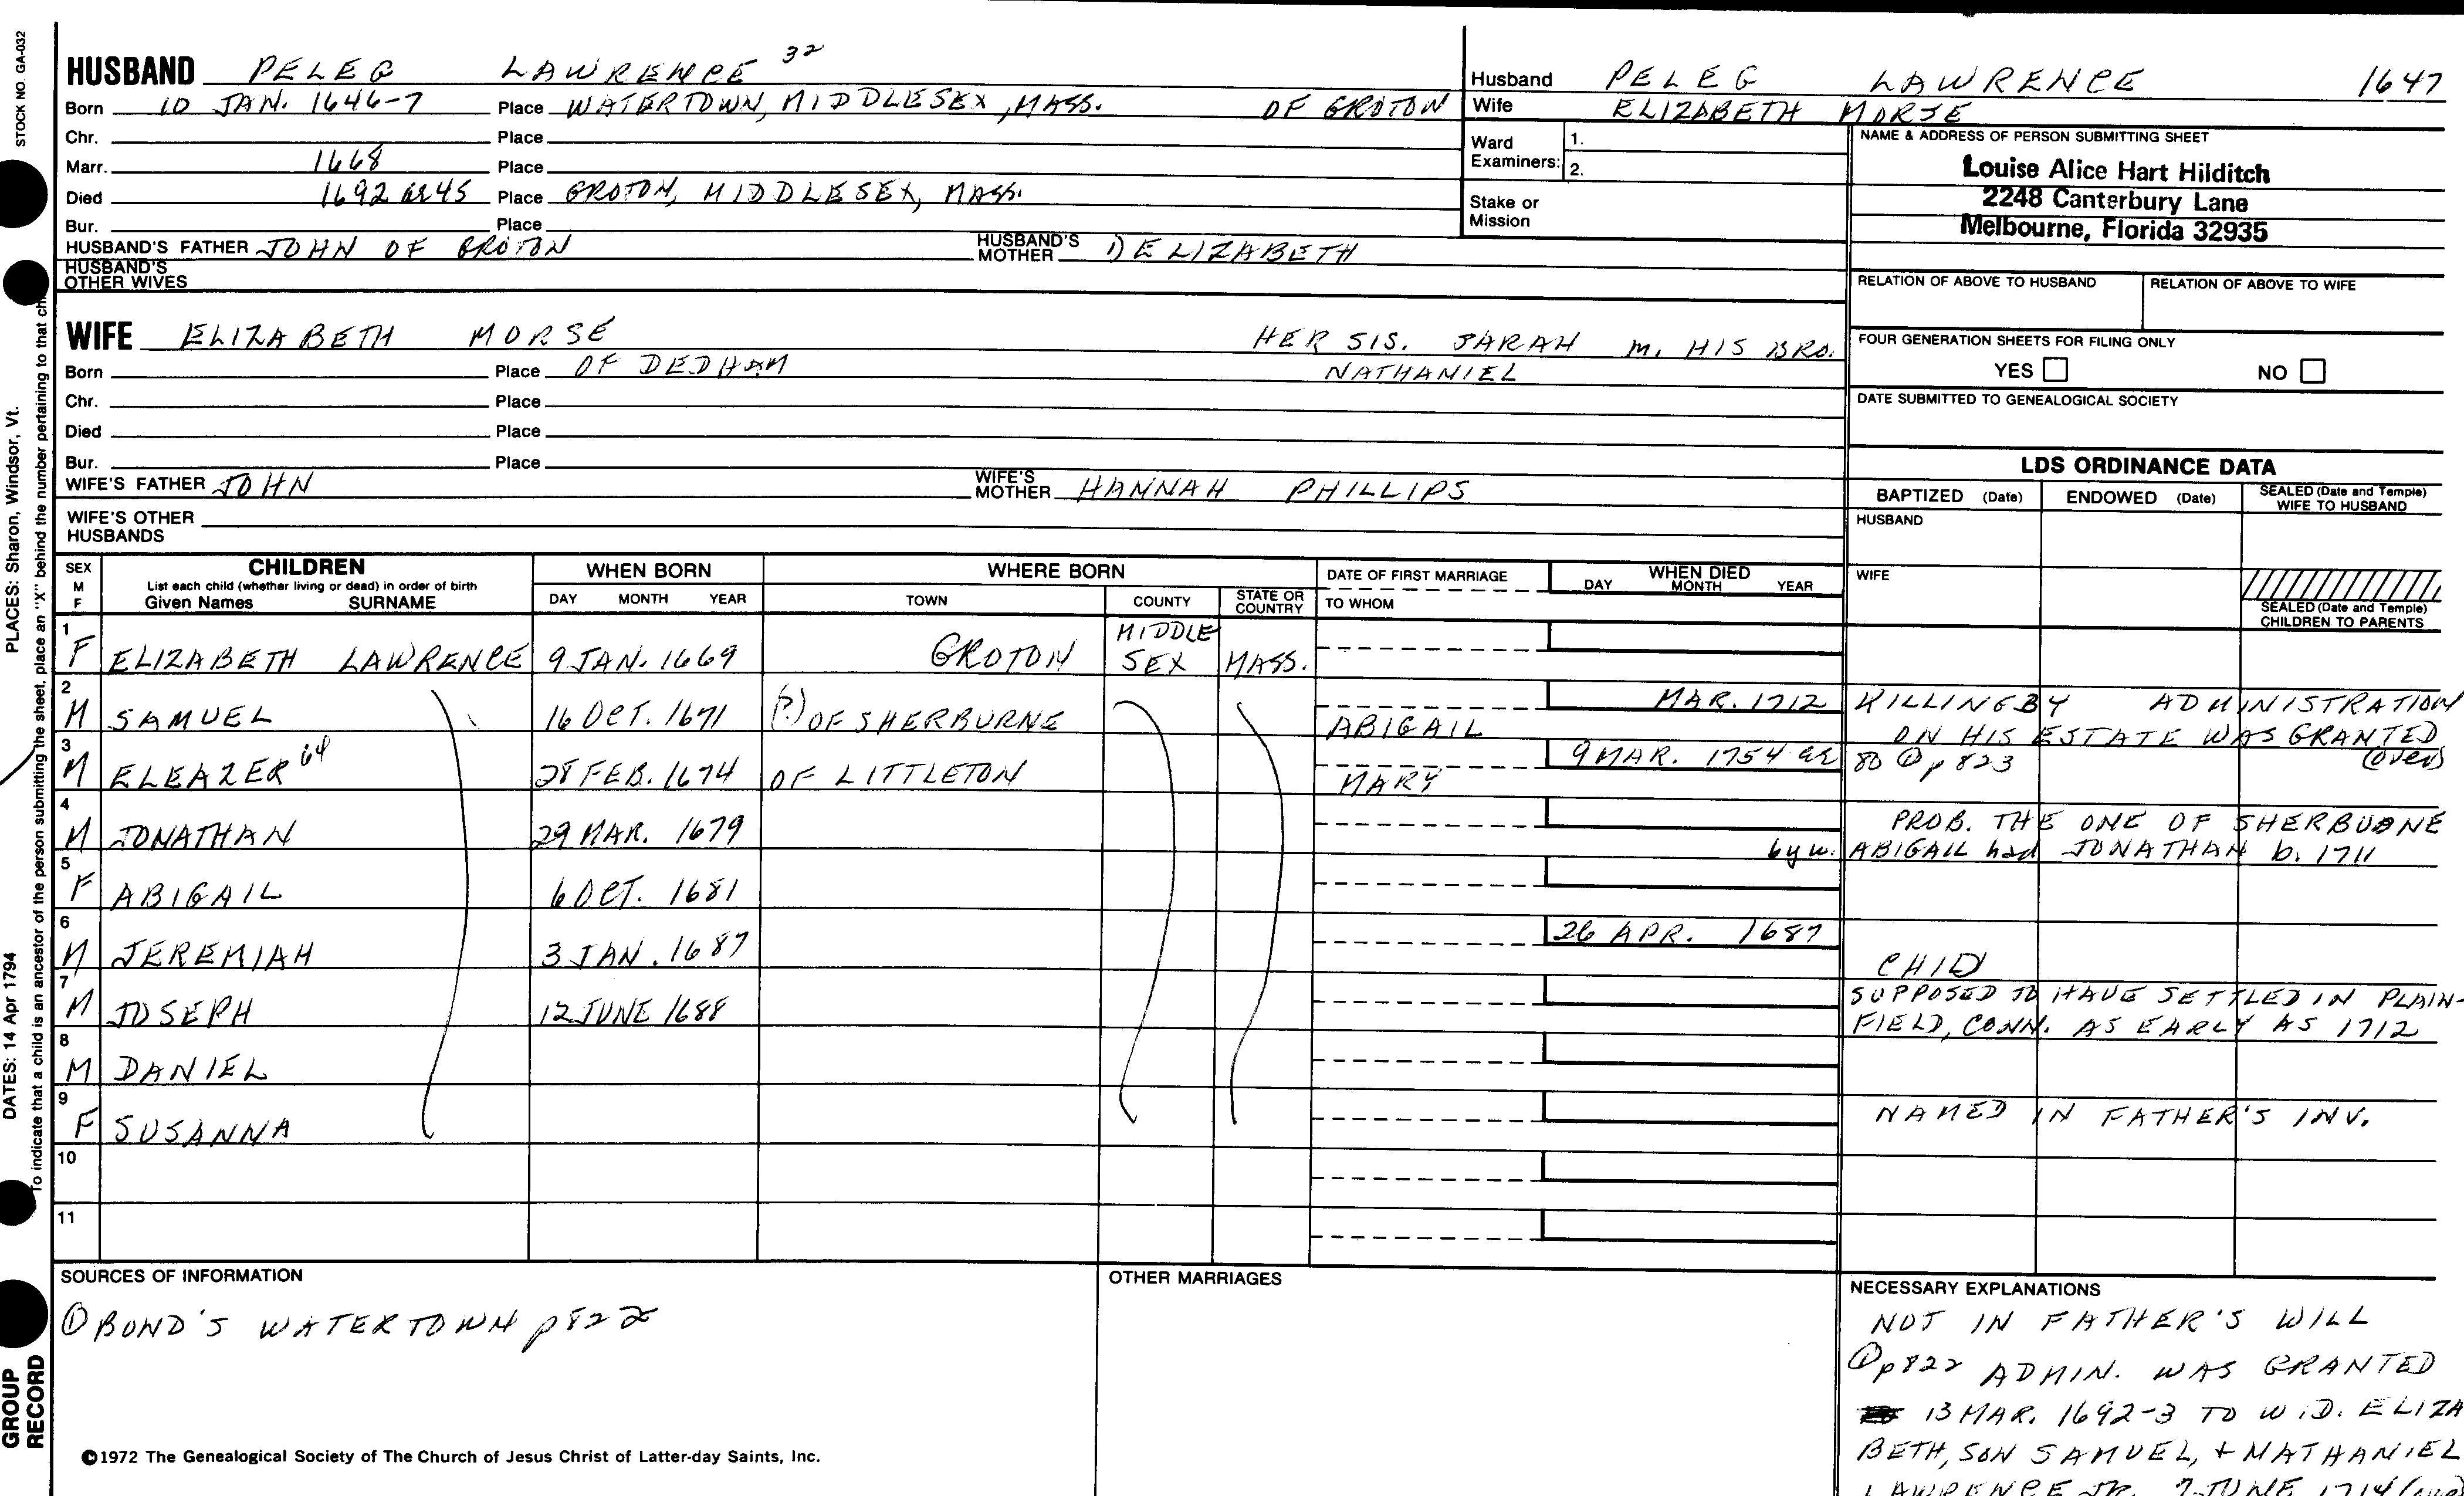 STOCK NO. GA-032
PLACES: Sharon, Windsor, Vt.
DATES: 14 Apr 1794
GROUP
RECORD
To indicate that a child is an ancestor of the person submitting the sheet, place an "X" behind the number pertaining to that ch
HUSBAND PELEG LAWRENCE 32
Born 10 JAN. 1646-7 Place WATERTOWN, MIDDLESEX, MASS. OF GROTON
Chr. Place
Marr. 1668 Place
Died 1692 Place GROTON, MIDDLESEX, MASS.
Bur. Place
HUSBAND'S FATHER JOHN OF GROTON HUSBAND'S MOTHER 1) ELIZABETH
HUSBAND'S
OTHER WIVES
Husband PELEG LAWRENCE 1647
Wife ELIZABETH MORSE
Ward
Examiners: 1.
2.
Stake or
Mission
NAME & ADDRESS OF PERSON SUBMITTING SHEET
Louise Alice Hart Hilditch
2248 Canterbury Lane
Melbourne, Florida 32935
RELATION OF ABOVE TO HUSBAND RELATION OF ABOVE TO WIFE
FOUR GENERATION SHEETS FOR FILING ONLY
YES NO
DATE SUBMITTED TO GENEALOGICAL SOCIETY
WIFE ELIZABETH MORSE HER SIS. SARAH m. HIS BRO.
NATHANIEL
Born Place OF DEDHAM
Chr. Place
Died Place
Bur. Place
WIFE'S FATHER JOHN WIFE'S MOTHER HANNAH PHILLIPS
WIFE'S OTHER
HUSBANDS
LDS ORDINANCE DATA
BAPTIZED (Date) ENDOWED (Date) SEALED (Date and Temple)
WIFE TO HUSBAND
HUSBAND
WIFE
SEALED (Date and Temple)
CHILDREN TO PARENTS
SEX
M
F
CHILDREN
List each child (whether living or dead) in order of birth
Given Names SURNAME
WHEN BORN
DAY MONTH YEAR
WHERE BORN
TOWN COUNTY STATE OR COUNTRY
DATE OF FIRST MARRIAGE
TO WHOM
WHEN DIED
DAY MONTH YEAR
1 F ELIZABETH LAWRENCE 9 JAN. 1669 GROTON MIDDLE SEX MASS.
2 M SAMUEL 16 OCT. 1671 (?) OF SHERBURNE ABIGAIL MAR. 1712 KILLINGBY ADMINISTRATION
ON HIS ESTATE WAS GRANTED
(over)
3 M ELEAZER 64 28 FEB. 1674 OF LITTLETON MARY 9 MAR. 1754 ae 80 ① p 823
4 M JONATHAN 29 MAR. 1679 PROB. THE ONE OF SHERBURNE
by w. ABIGAIL had JONATHAN b. 1711
5 F ABIGAIL 6 OCT. 1681
6 M JEREMIAH 3 JAN. 1687 26 APR. 1687
CHID
7 M JOSEPH 12 JUNE 1688 SUPPOSED TO HAVE SETTLED IN PLAIN-
FIELD, CONN. AS EARLY AS 1712
8 M DANIEL
9 F SUSANNA NAMED IN FATHER'S INV.
10
11
SOURCES OF INFORMATION
① BOND'S WATERTOWN p822
OTHER MARRIAGES
NECESSARY EXPLANATIONS
NOT IN FATHER'S WILL
① p822 ADMIN. WAS GRANTED
13 MAR. 1692-3 TO WID. ELIZA
BETH, SON SAMUEL, + NATHANIEL
LAWRENCE JR. 7 JUNE 1714
©1972 The Genealogical Society of The Church of Jesus Christ of Latter-day Saints, Inc.